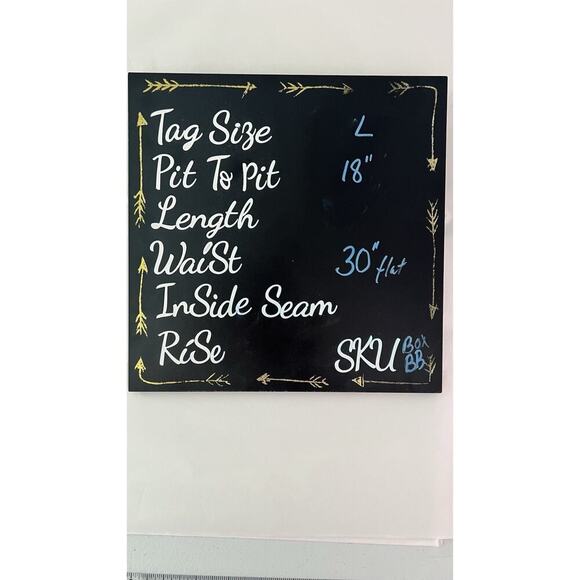 Tag Size L
Pit To Pit 18"
Length
WaiSt 30" flat
InSide Seam
RiSe
SKU Box BB